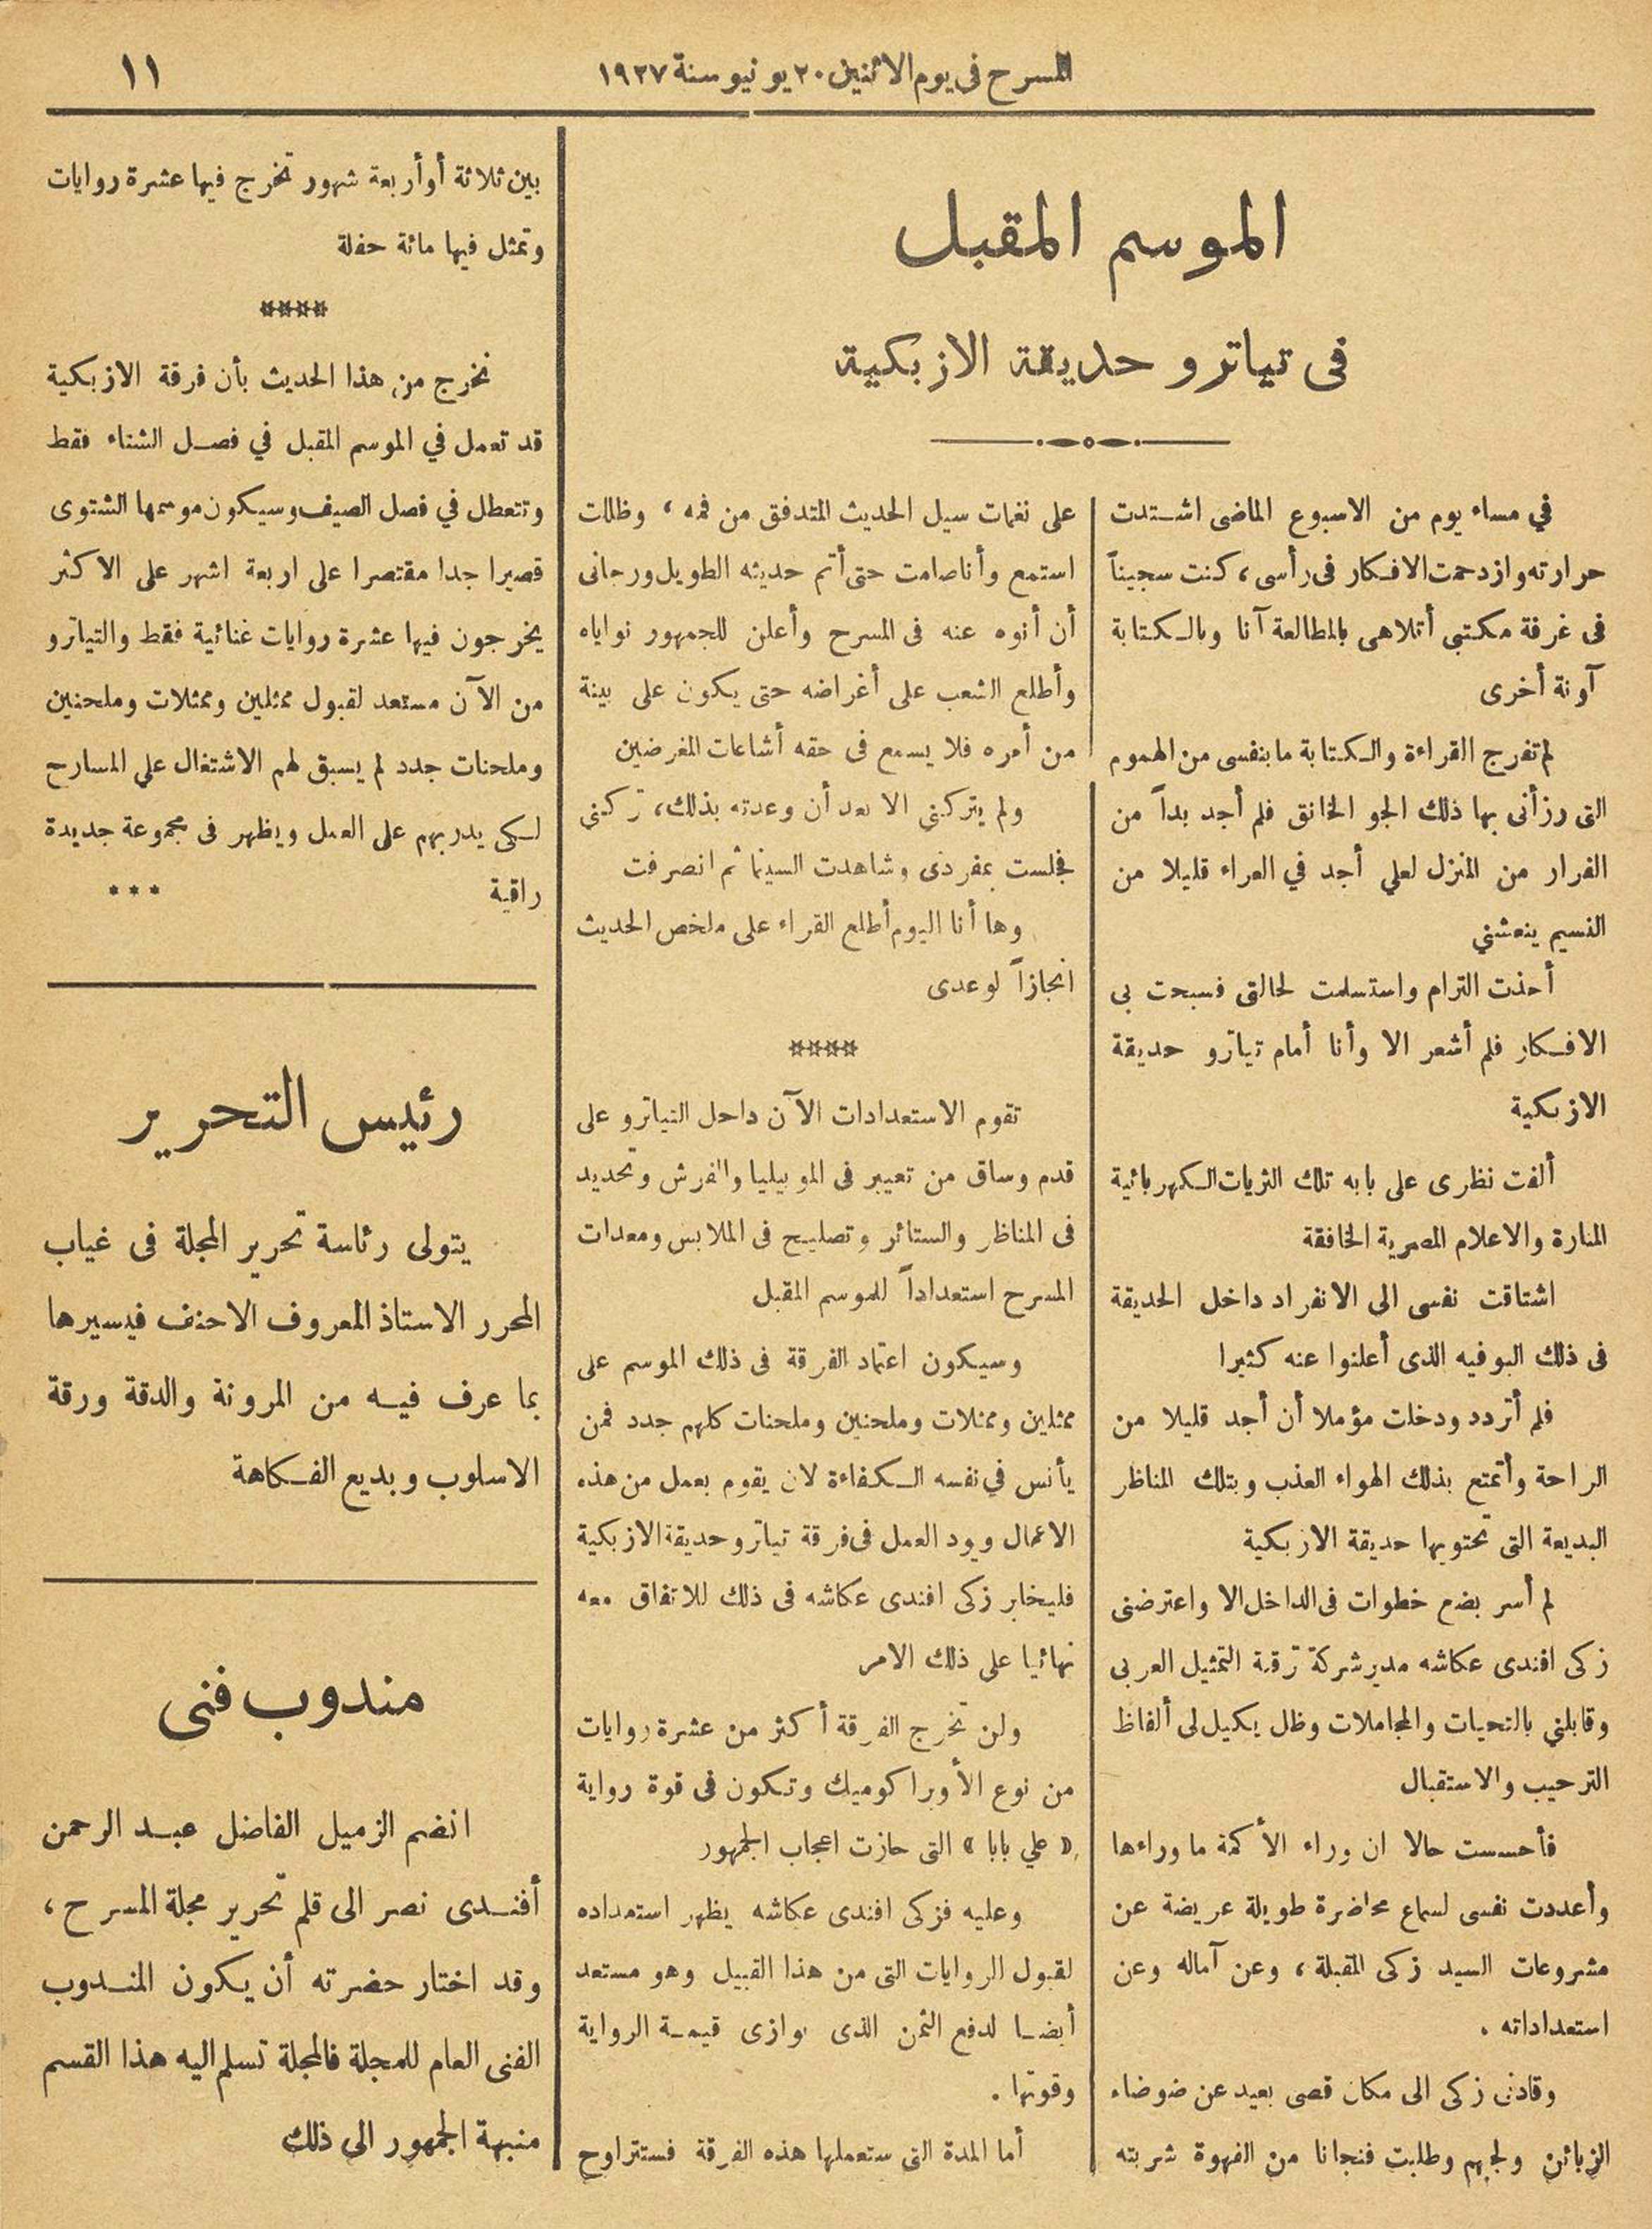 المسرح فى يوم الاثنين ٢٠ يونيو سنة ١٩٢٧
١١
الموسم المقبل
فى تياترو حديقة الازبكية
في مساء يوم من الاسبوع الماضى اشتدت
حرارته وازدحمت الافكار فى رأسى ، كنت سجيناً
فى غرفة مكتبى أتلاهى بالمطالعة آنا وبالكتابة
آونة أخرى
لم تفرج القراءة والكتابة ما بنفسى من الهموم
التى رزأنى بها ذلك الجو الخانق فلم أجد بداً من
الفرار من المنزل لعلي أجد في العراء قليلا من
النسيم ينعشني
أخذت الترام واستسلمت لحالتى فسبحت بى
الافكار فلم أشعر الا وأنا أمام تياترو حديقة
الازبكية
ألفت نظرى على بابه تلك الثريات الكهربائية
المنارة والاعلام المصرية الخافقة
اشتاقت نفسى الى الانفراد داخل الحديقة
فى ذلك البوفيه الذى أعلنوا عنه كثيرا
فلم أتردد ودخلت مؤملا أن أجد قليلا من
الراحة وأتمتع بذلك الهواء العذب وبتلك المناظر
البديعة التى تحتويها حديقة الازبكية
لم أسر بضع خطوات فى الداخل الا واعترضنى
زكى افندى عكاشه مدير شركة ترقية التمثيل العربى
وقابلني بالتحيات والمجاملات وظل يكيل لى ألفاظ
الترحيب والاستقبال
فأحسست حالا ان وراء الأكمة ما وراءها
وأعددت نفسى لسماع محاضرة طويلة عريضة عن
مشروعات السيد زكى المقبلة ، وعن آماله وعن
استعداداته .
وقادنى زكى الى مكان قصى بعيد عن ضوضاء
الزبائن ولجبهم وطلبت فنجانا من القهوة شربته
على نغمات سيل الحديث المتدفق من فمه ، وظللت
استمع وأنا صامت حتى أتم حديثه الطويل ورجانى
أن أنوه عنه فى المسرح وأعلن للجمهور نواياه
وأطلع الشعب على أغراضه حتى يكون على بينة
من أمره فلا يسمع فى حقه أشاعات المغرضين
ولم يتركني الا بعد أن وعدته بذلك، تركني
فجلست بمفردى وشاهدت السينما ثم انصرفت
وها أنا اليوم أطلع القراء على ملخص الحديث
انجازاً لوعدى
****
تقوم الاستعدادات الآن داخل التياترو على
قدم وساق من تغيير فى الموبيليا والفرش وتجديد
فى المناظر والستائر وتصليح فى الملابس ومعدات
المسرح استعداداً للموسم المقبل
وسيكون اعتماد الفرقة فى ذلك الموسم على
ممثلين وممثلات وملحنين وملحنات كلهم جدد فمن
يأنس في نفسه الكفاءة لان يقوم بعمل من هذه
الاعمال ويود العمل فى فرقة تياترو حديقة الازبكية
فليخابر زكى افندى عكاشه فى ذلك للاتفاق معه
نهائيا على ذلك الامر
ولن تخرج الفرقة أكثر من عشرة روايات
من نوع الأوبرا كوميك وتكون فى قوة رواية
« علي بابا » التى حازت اعجاب الجمهور
وعليه فزكى افندى عكاشه يظهر استعداده
لقبول الروايات التى من هذا القبيل وهو مستعد
أيضا لدفع الثمن الذى يوازى قيمة الرواية
وقوتها .
أما المدة التى ستعملها هذه الفرقة فستتراوح
بين ثلاثة أو أربعة شهور تخرج فيها عشرة روايات
وتمثل فيها مائة حفلة
****
نخرج من هذا الحديث بأن فرقة الازبكية
قد تعمل في الموسم المقبل في فصل الشتاء فقط
وتتعطل في فصل الصيف وسيكون موسمها الشتوى
قصيرا جدا مقتصرا على اربعة اشهر على الاكثر
يخرجون فيها عشرة روايات غنائية فقط والتياترو
من الآن مستعد لقبول ممثلين وممثلات وملحنين
وملحنات جدد لم يسبق لهم الاشتغال على المسارح
لكى يدربهم على العمل ويظهر فى مجموعة جديدة
راقية ***
رئيس التحرير
يتولى رئاسة تحرير المجلة فى غياب
المحرر الاستاذ المعروف الاحنف فيسيرها
بما عرف فيه من المرونة والدقة ورقة
الاسلوب وبديع الفكاهة
مندوب فنى
انضم الزميل الفاضل عبد الرحمن
أفندى نصر الى قلم تحرير مجلة المسرح ،
وقد اختار حضرته أن يكون المندوب
الفنى العام للمجلة فالمجلة تسلم اليه هذا القسم
منبهة الجمهور الى ذلك